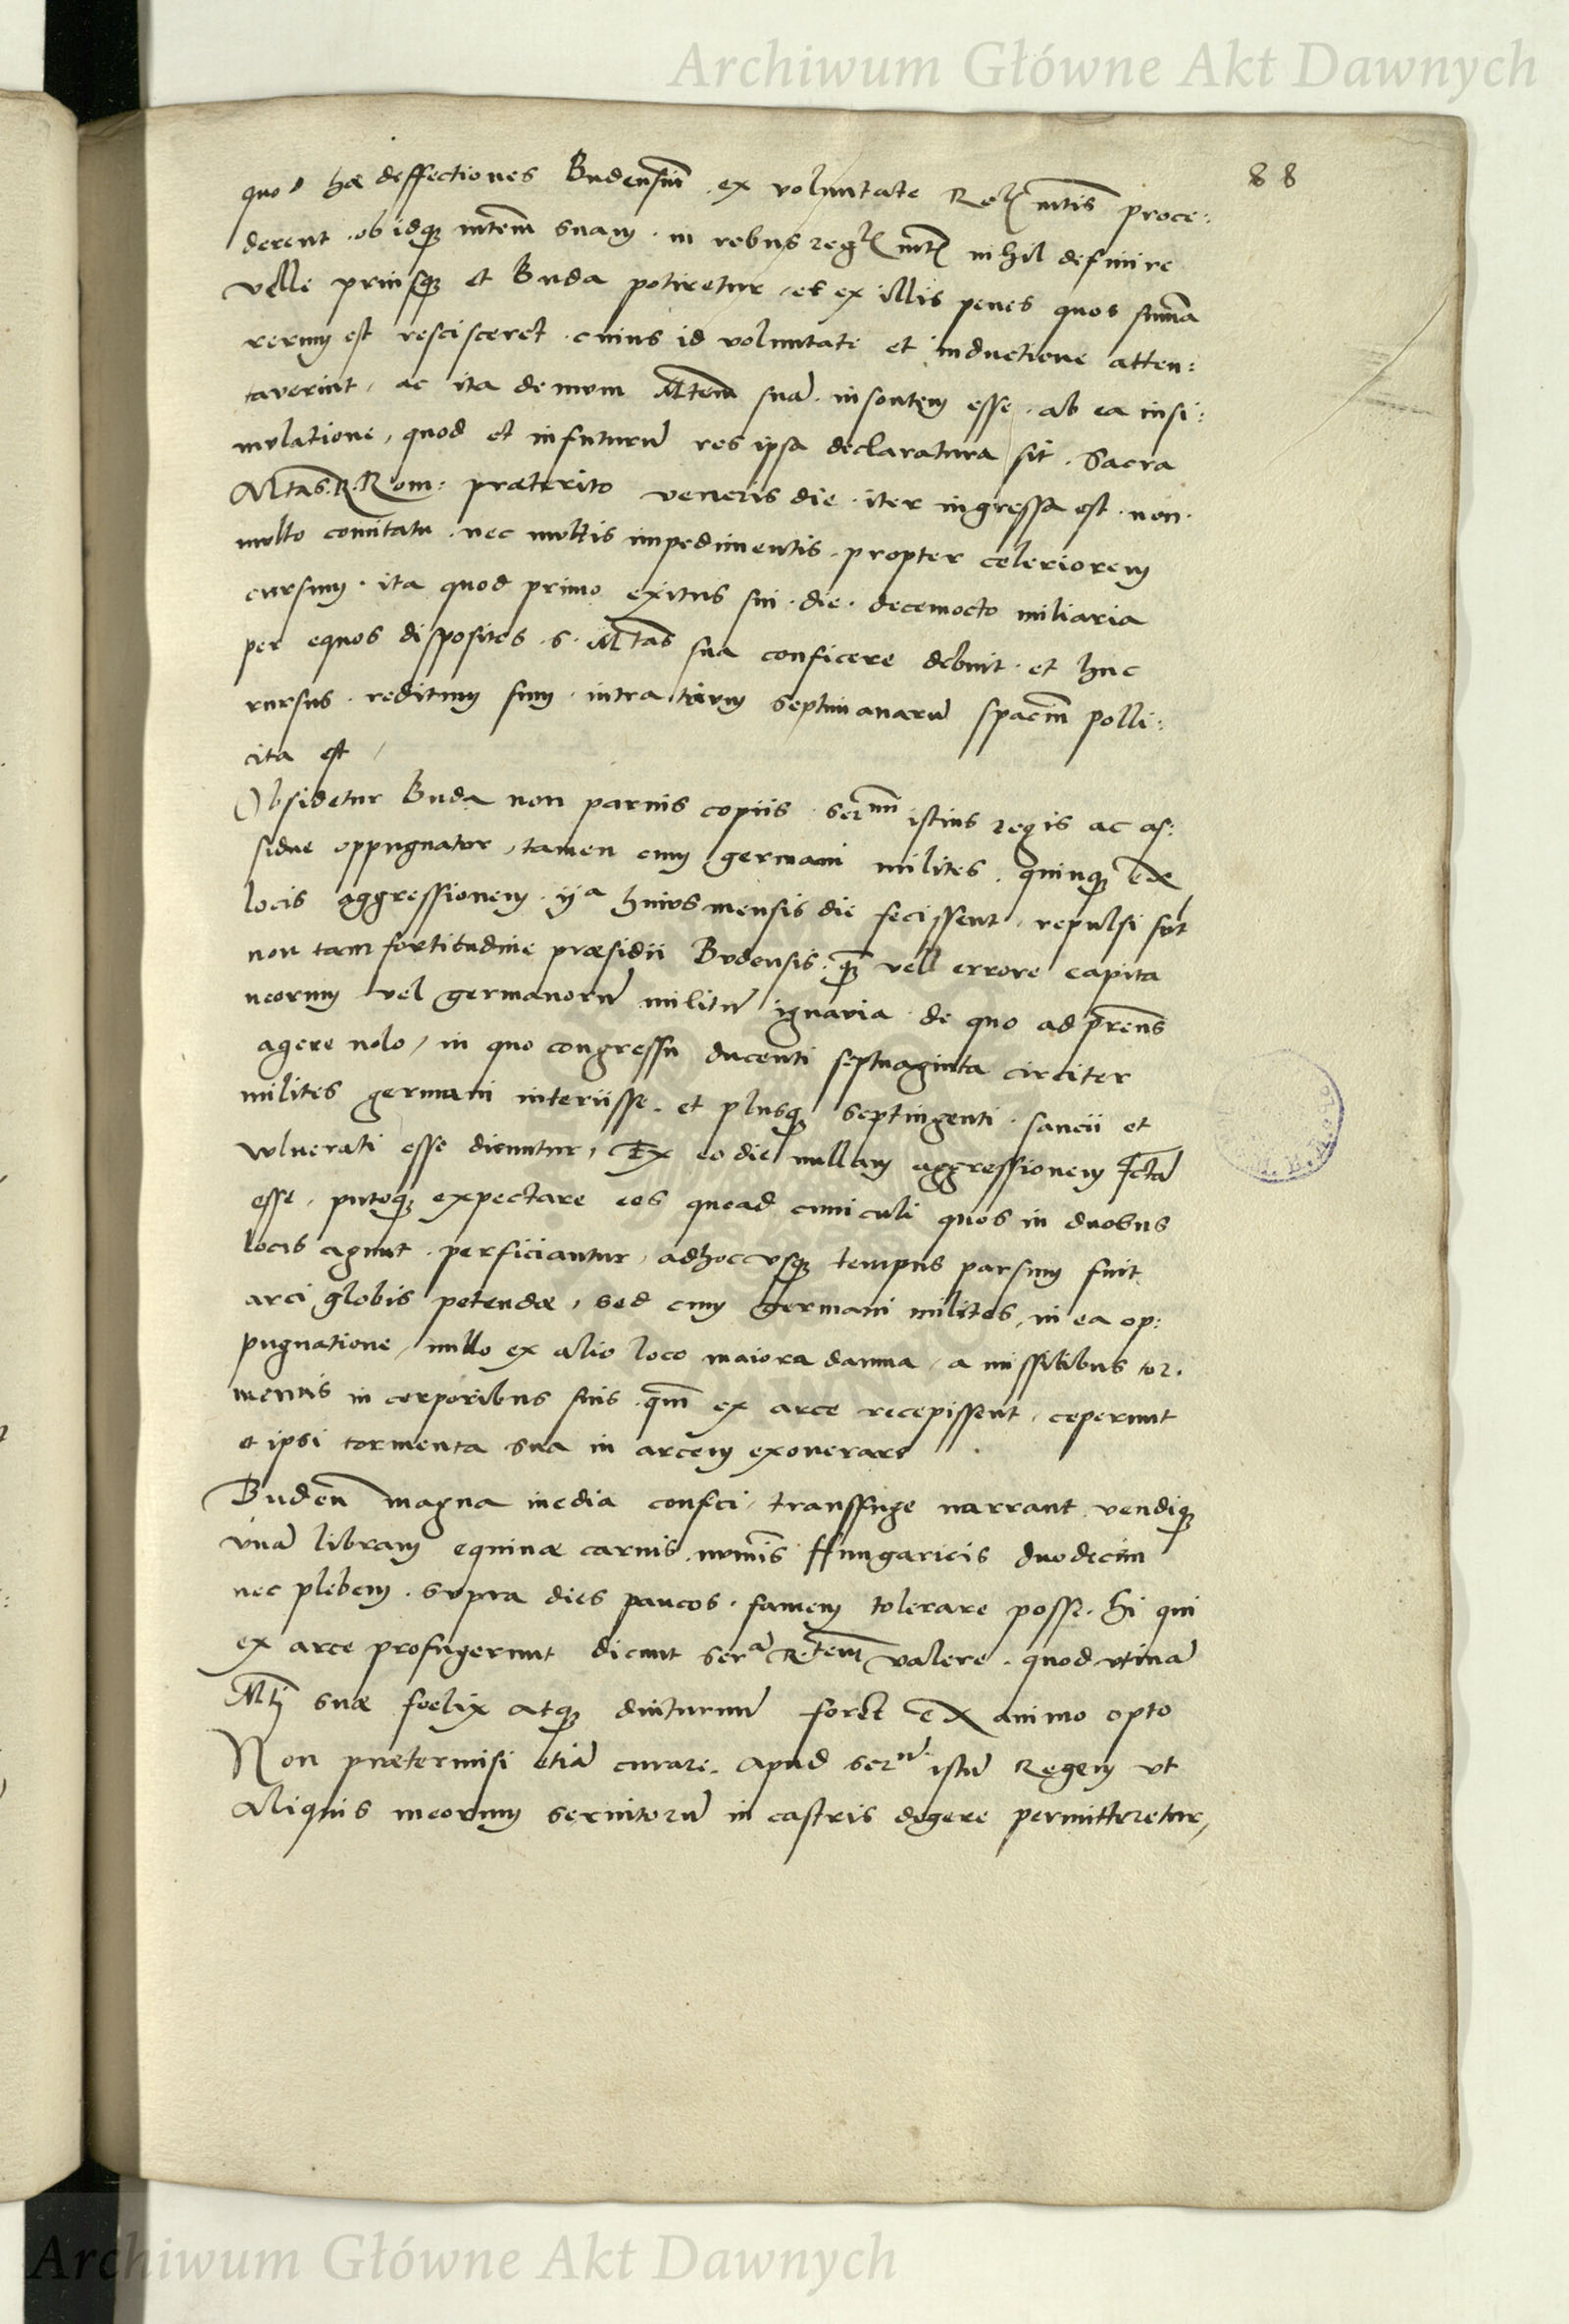 Archiwum Główne Akt Dawnych
88
quod hæ deffectiones Budensiũ ex voluntate Regꝭ mtis proce:
derent. ob idq; mtem suam. in rebus regꝭ mtꝭ nihil definire
velle priusq; et Buda potiretur, et ex illis penes quos suma
rerum est rescisceret. cuius id voluntate et inductione atten:
taverint, ac ita demum Mtem suã. insontem esse. ab ea insi:
mulatione, quod et in futurũ res ipsa declaratura sit. Sacra
Mtas. R. Rom: præterito veneris die. iter ingressa est. non.
multo comitatu. nec multis impedimentis. propter celeriorem
cursum. ita quod primo exitus sui. die. decemocto miliaria
per equos dispositos. s. Mtas sua conficere debuit. et huc
rursus. reditum suum. intra trium septimanarũ spaciũ polli:
cita est,
Obsidetur Buda non parvis copiis ser^mi istius regis ac as:
sidue oppugnatur, tamen cum germani milites. quinq; ex
locis aggressionem. ij^a huius mensis die fecissent, repulsi sũt
non tam fortitudine præsidii Budensis. q̃ vel errore capita
neorum vel germanorũ militũ ignavia de quo ad prẽns
agere nolo, in quo congressu ducenti septuaginta circiter
milites germani interiisse. et plusq; septingenti. saucii et
vulnerati esse dicuntur, Ex eo die nullam aggressionem fctã
esse, putoq; expectare eos quoad cuniculi quos in duobus
locis agunt. perficiantur, adhoccusq; tempus parsum fuit
arci globis petendæ, sed cum germani milites, in ea op:
pugnatione, nullo ex alio loco maiora damna, a missilibus tor.
mentis in corporibus suis. qm̃ ex arce recepissent, ceperunt
et ipsi tormenta sua in arcem exonerare.
Budeñ magna inedia confici, transfuge narrant. vendiq;
unã libram equinæ carnis. numis Hungaricis duodecim
nec plebem. supra dies paucos. famem tolerare posse. hi qui
ex arce profugerunt dicunt ser^ã R.tem valere. quod utinã
Mtj suæ foelix atq; diuturnũ foret ex animo opto
Non prætermisi etiã curare. apud ser^m. istũ Regem ut
aliquis meorum servitorũ in castris degere permitteretur,
Archiwum Główne Akt Dawnych